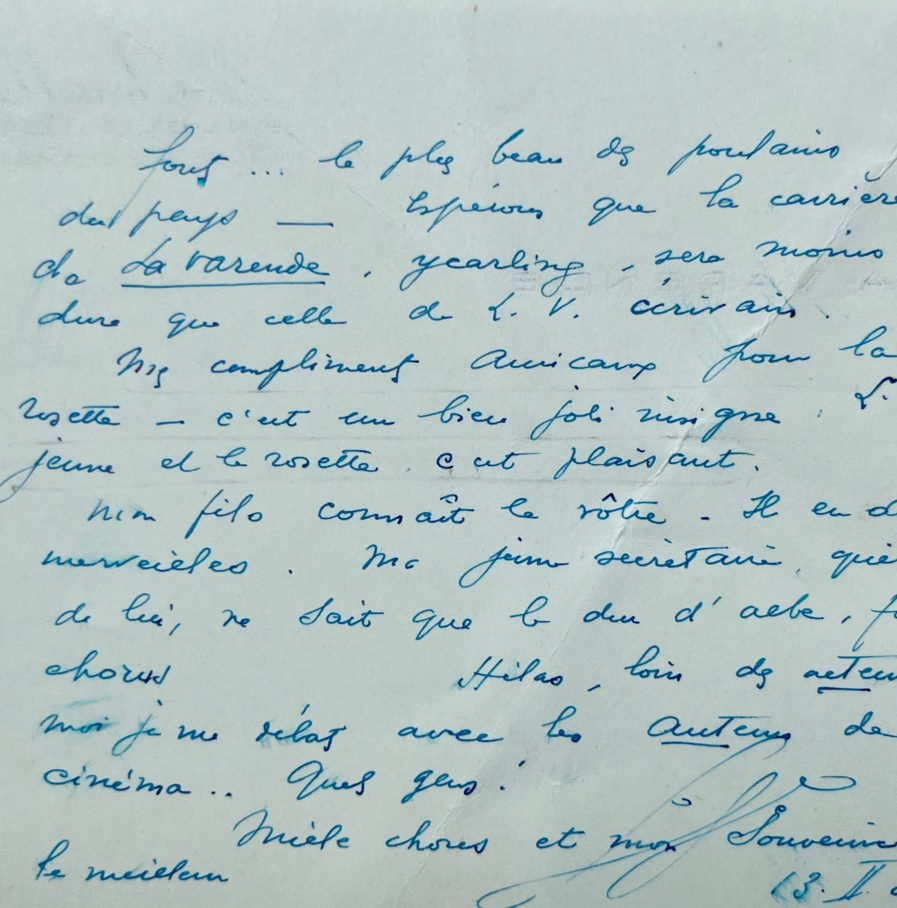 font... le plus beau des poulains
du pays — Espérons que la carrière
de La Varende, yearling, sera moins
dure que celle de L. V. écrivain.
Mes compliments amicaux pour la
rosette — c'est un bien joli insigne : L.
jeune et la rosette, c'est plaisant.
Mon fils connaît le vôtre. Il en d
merveilles. Ma jeune secrétaire,
de lui, ne sait que le duc d'Albe, f
choses Hélas, loin des acteur
moi je me débats avec les auteurs de
cinéma.. Quels gens !
Mille choses et mon souvenir
le meilleur
13. II.